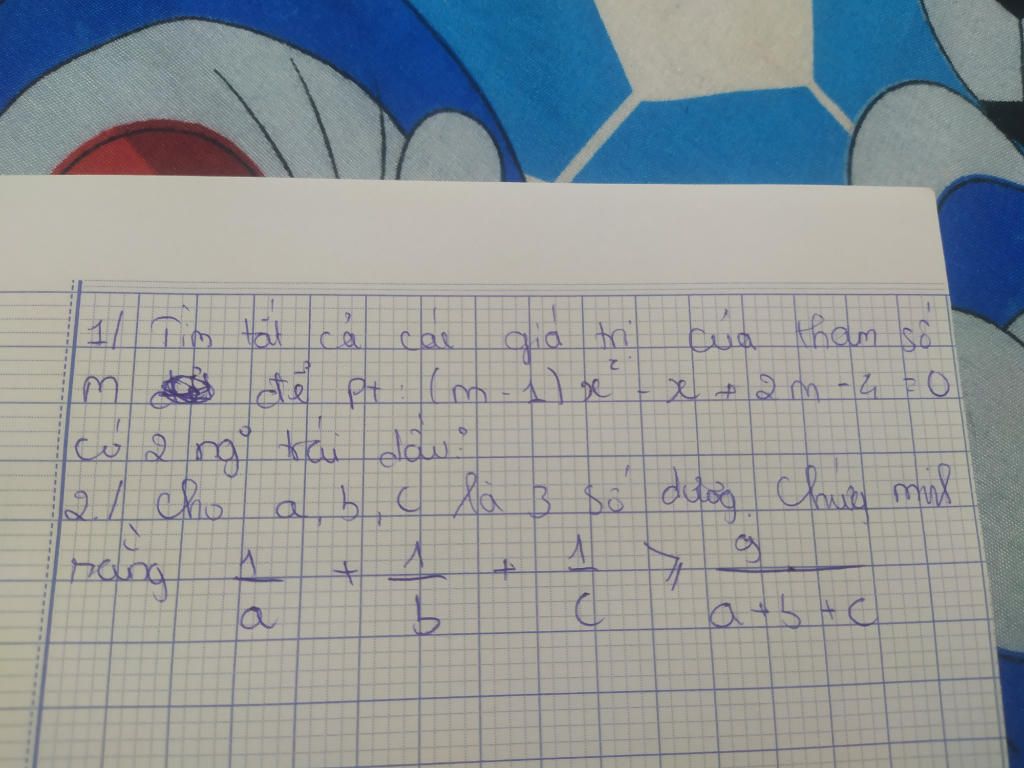 1/ Tìm tất cả các giá trị của tham số
m để pt : (m - 1) x² - x + 2m - 4 = 0
có 2 ngº trái dấu?
2./ Cho a, b, c là 3 số dương. Chứng minh
rằng 1/a + 1/b + 1/c ⩾ 9/(a+b+c)